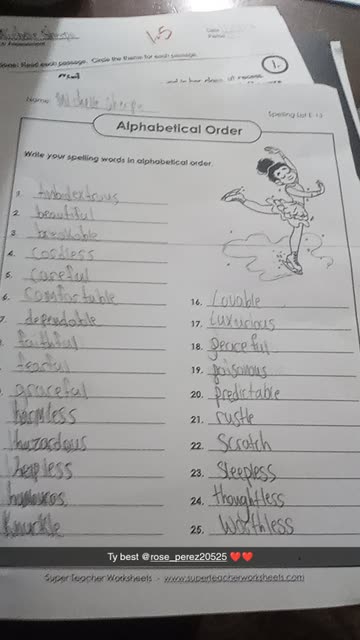 1.5
Read each passage. Circle the theme for each passage.
1.
Name: Michelle Sherpe
Spelling List E-13
Alphabetical Order
Write your spelling words in alphabetical order.
1. ambidextrous
2. beautiful
3. breakable
4. costless
5. careful
6. comfortable
7. dependable
faithful
fearful
graceful
harmless
hazardous
helpless
humouros
Knuckle
16. Lovable
17. Luxurious
18. peaceful
19. poisonous
20. predictable
21. rustle
22. Scratch
23. Sleepless
24. thoughtless
25. Worthless
Ty best @rose_perez20525 ❤️❤️
Super Teacher Worksheets - www.superteacherworksheets.com